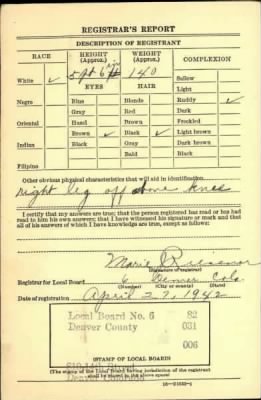 REGISTRAR'S REPORT
DESCRIPTION OF REGISTRANT
RACE HEIGHT (Approx.) WEIGHT (Approx.) COMPLEXION
White ✓ 5 ft 6 in 140 Sallow
EYES HAIR Light
Negro Blue Blonde Ruddy ✓
Gray Red Dark
Oriental Hazel Brown Freckled
Brown ✓ Black ✓ Light brown
Indian Black Gray Dark brown
Bald Black
Filipino
Other obvious physical characteristics that will aid in identification
right leg off above knee
I certify that my answers are true; that the person registered has read or has had
read to him his own answers; that I have witnessed his signature or mark and that
all of his answers of which I have knowledge are true, except as follows:
Marie
(Signature of registrar)
Registrar for Local Board 6 Denver Colo
(Number) (City or county) (State)
Date of registration April 27, 1942
Local Board No. 6 82
Denver County 031
006
(STAMP OF LOCAL BOARD)
(The stamp of the Local Board having jurisdiction of the registrant
shall be placed in the above space)